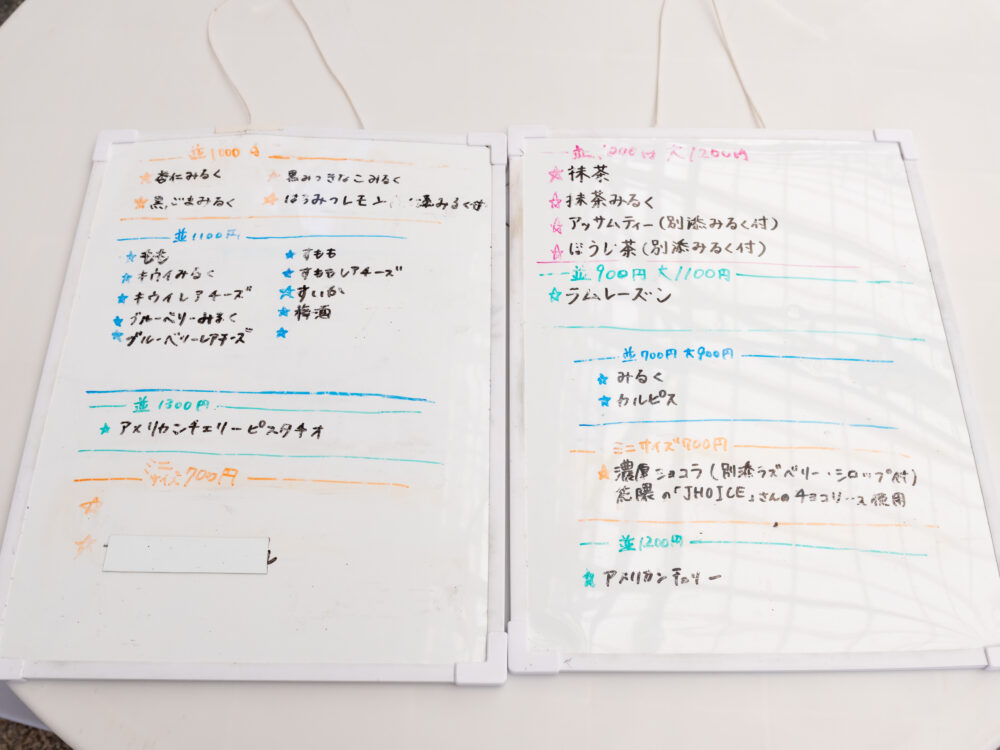 並1000円
杏仁みるく
黒みつきなこみるく
黒ごまみるく
はちみつレモン みるく付
並1100円
もも
キウイみるく
キウイレアチーズ
ブルーベリーみるく
ブルーベリーレアチーズ
すもも
すももレアチーズ
すいか
梅酒
並1300円
アメリカンチェリーピスタチオ
ミニサイズ700円
並1000円 大1200円
抹茶
抹茶みるく
アッサムティー(別添みるく付)
ほうじ茶(別添みるく付)
並900円 大1100円
ラムレーズン
並700円 大900円
みるく
カルピス
ミニサイズ900円
濃厚ショコラ(別添ラズベリー・シロップ付)
能隈の「JHOICE」さんのチョコソース使用
並1200円
アメリカンチェリー